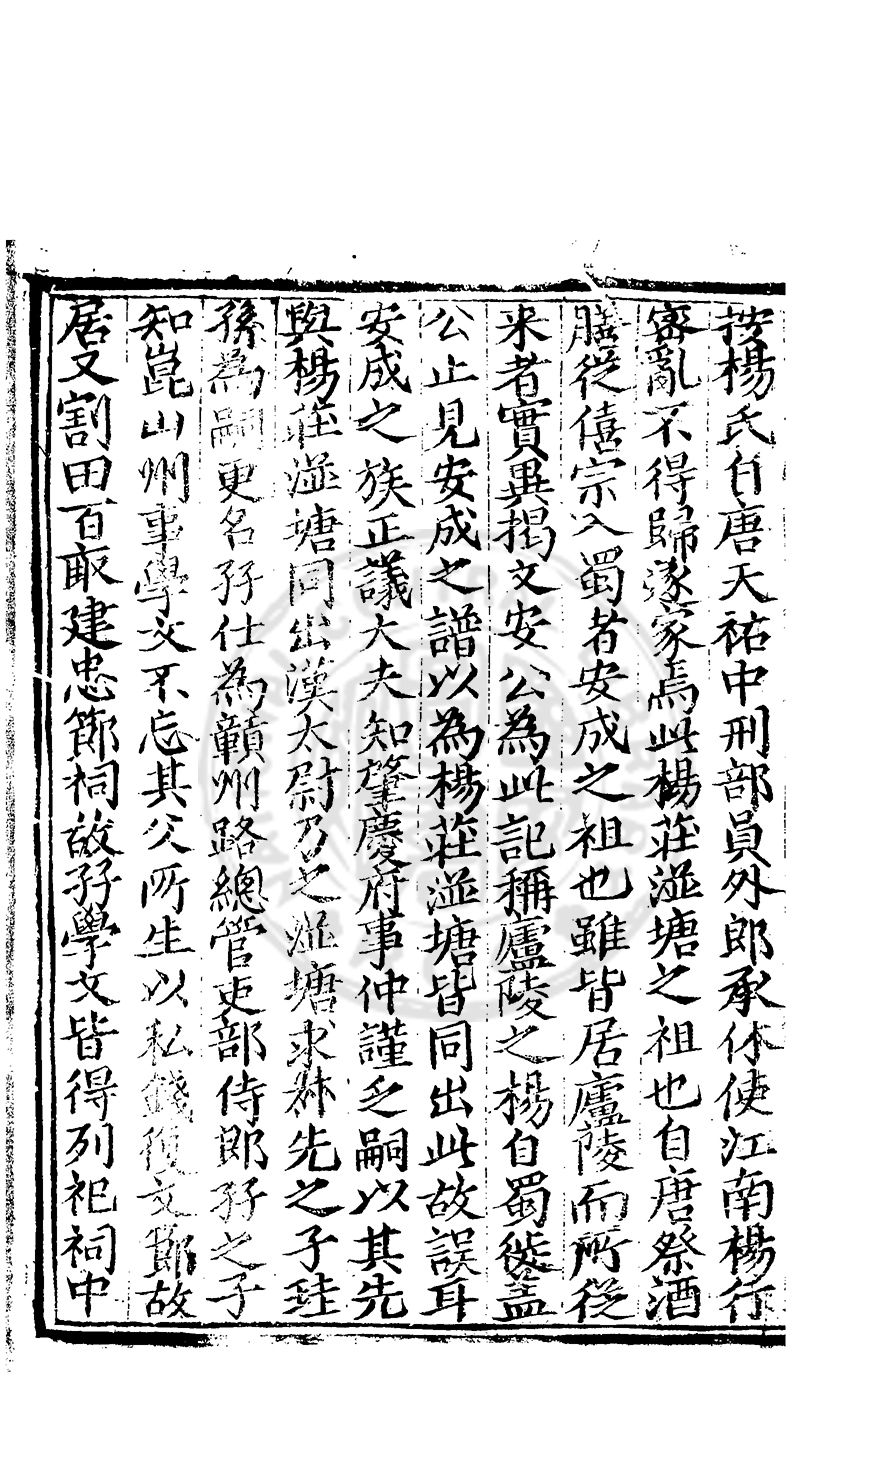 按楊氏自唐天祐中刑部員外郎承休使江南楊行
密亂不得歸遂家焉此楊莊湴塘之祖也自唐祭酒
膳從僖宗入蜀者安成之祖也雖皆居廬陵而所從
来者實異揭文安公為此記稱廬陵之楊自蜀徙盖
公止見安成之譜以為楊莊湴塘皆同出此故誤耳
安成之族正議大夫知肇慶府事仲謹乏嗣以其先
與楊莊湴塘同出漢太尉乃之湴塘求桝先之子珪
孫為嗣更名孖仕為贛州路總管吏部侍郎孖之子
知崑山州事學文不忘其父所生以私錢復文節故
居又割田百畝建忠節祠故孖學文皆得列祀祠中